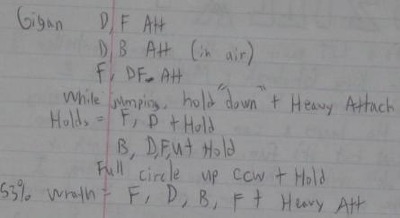 Gigan D, F Att
D, B Att (in air)
F, DF Att
While jumping, hold "down" + Heavy Attack
Holds = F, D + Hold
B, D, F, u + Hold
Full circle up ccw + Hold
53% wrath = F, D, B, F + Heavy Att